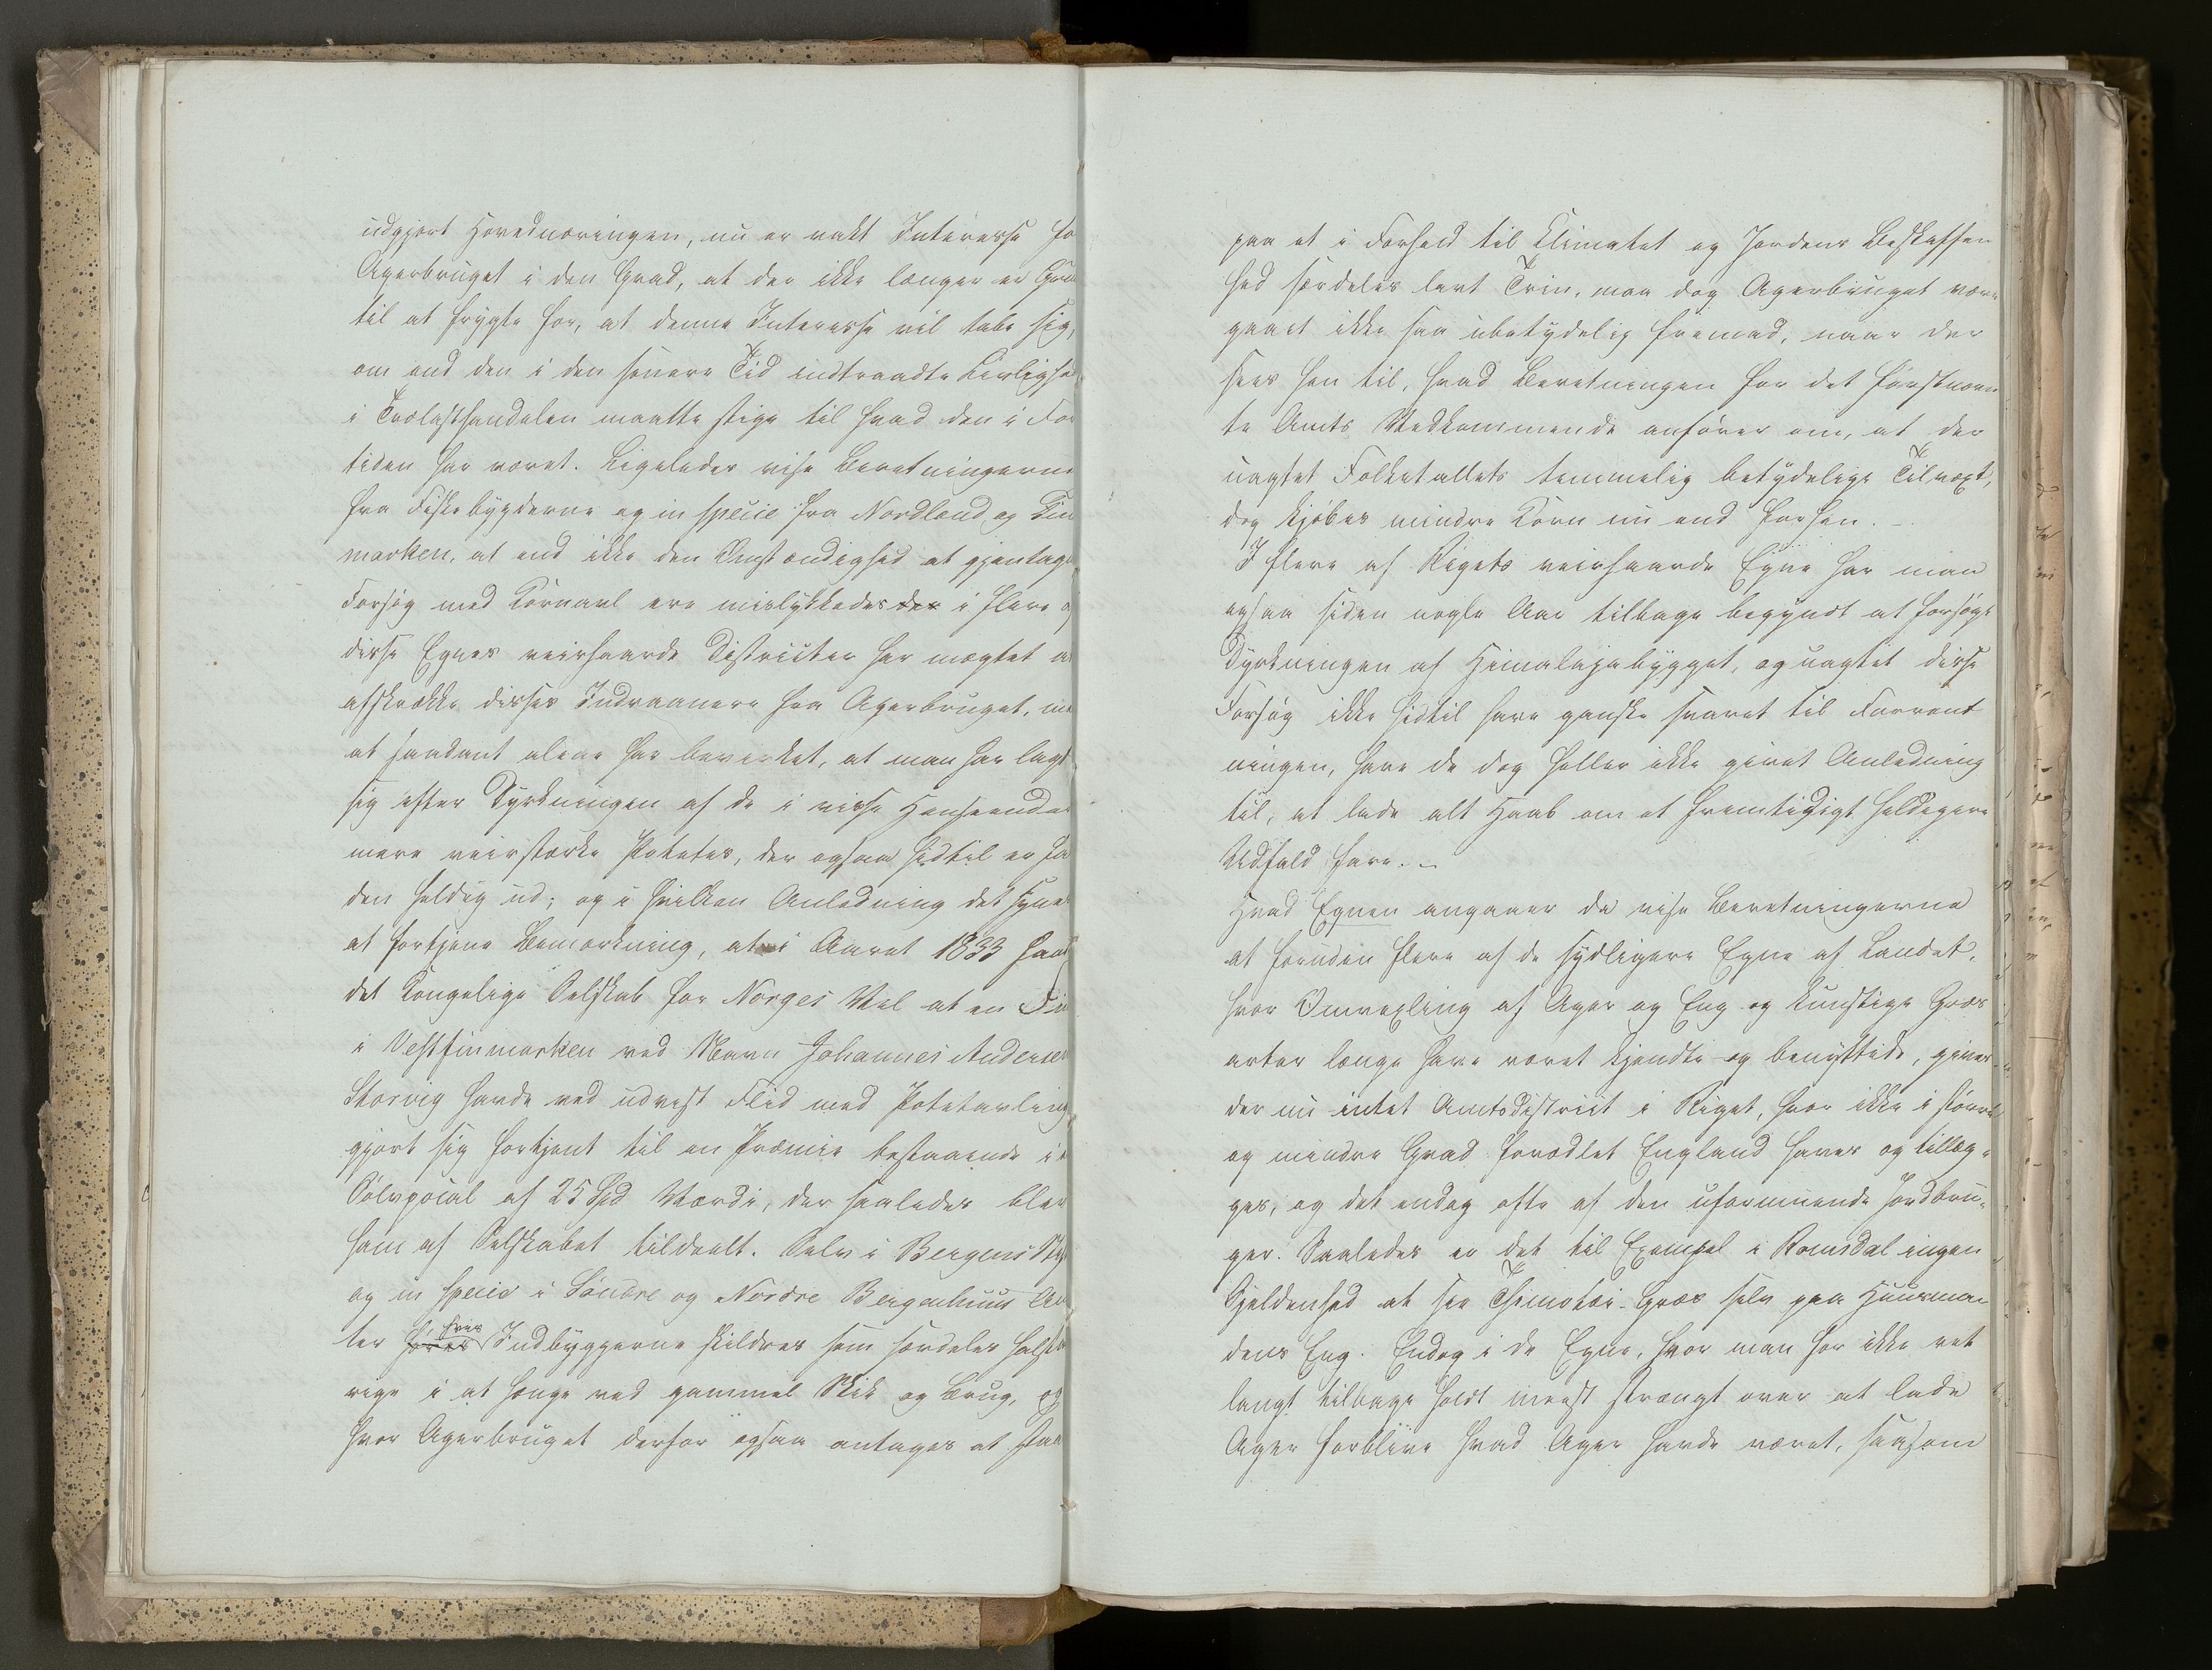 udgjort Hovednæringen, nu er vakt Interesse fo
Agerbruget i den Grad, at der ikke længer er Gru
til at frygte for, at denne Interesse vil tabe sig,
om end den i den senere Tid indtraadte Livlighe
i Trælasthandelen maatte stige til hvad den i For
tiden har været. Ligeledes vise Beretningerne
fra Fiskebygderne og in specie fra Nordland og Fin
marken, at end ikke den Omstændighed at gjentagn
Forsøg med Kornavl ere mislykkedes der i flere a
disse Egnes veirhaarde Districter har mægtet a
afskrække disses Indvaanere fra Agerbruget, me
at saadant alene har bevirket, at man har lagt
sig efter Dyrkningen af de i visse Henseende
mere veirstærke Poteter, der ogsaa hidtil er fa
den heldig ud; og i hvilken Anledning det syne
at fortjene Bemærkning, at i Aaret 1833 fand
det Kongelige Selskab for Norges Vel at en Fin
i Vestfinmarken ved Navn Johannes Anderse
Storvig havde ved udvist Flid med Potetavling
gjort sig fortjent til en Præmie bestaaende i
Sølvpocal af 25 Spd Værdi, der saaledes blev
ham af Selskabet tildeelt. Selv i Bergens Stif
og in specie i Søndre og Nordre Bergenhuus Am
ter hvis Indbyggerne skildres som særdeles halsta
rige i at hænge ved gammel Skik og Brug, og
hvor Agerbruget derfor ogsaa antages at staa
paa et i Forhold til Climatet og Jordens Beskaffen
hed særdeles lavt Trin, maa dog Agerbruget være
gaaet ikke saa ubetydelig fremad, naar der
sees hen til, hvad Beretningen for det førstnævn
te Amts Vedkommende anfører om, at der
uagtet Folketallets temmelig betydelige Tilvæxt,
dog kjøbes mindre Korn nu end forhen. –
I flere af Rigets veirhaarde Egne har man
ogsaa siden nogle Aar tilbage begyndt at forsøge
Dyrkningen af Himalajabygget, og uagtet disse
Forsøg ikke hidtil have ganske svaret til Forvent
ningen, have de dog heller ikke givet Anledning
til, at lade alt Haab om et fremtidigt heldigere
Udfald fare. –
Hvad Egnen angaaer da vise Beretningerne
at foruden flere af de sydligere Egne af Landet,
hvor Omvexling af Ager og Eng og kunstige Græs
arter længe have været kjendte og benyttede, gives
der nu intet Amtsdistrict i Riget, hvor ikke i større
og mindre Grad forædlet England haves og tillæg-
ges, og det endog ofte af den uformuende Jordbru-
ger. Saaledes er det til Exempel i Romsdal ingen
Sjeldenhed at see Thimothei-Græs selv paa Huusman
dens Eng. Endog i de Egne, hvor man for ikke ret
langt tilbage holdt meest strængt over at lade
Ager forblive hvad Ager havde været, saasom